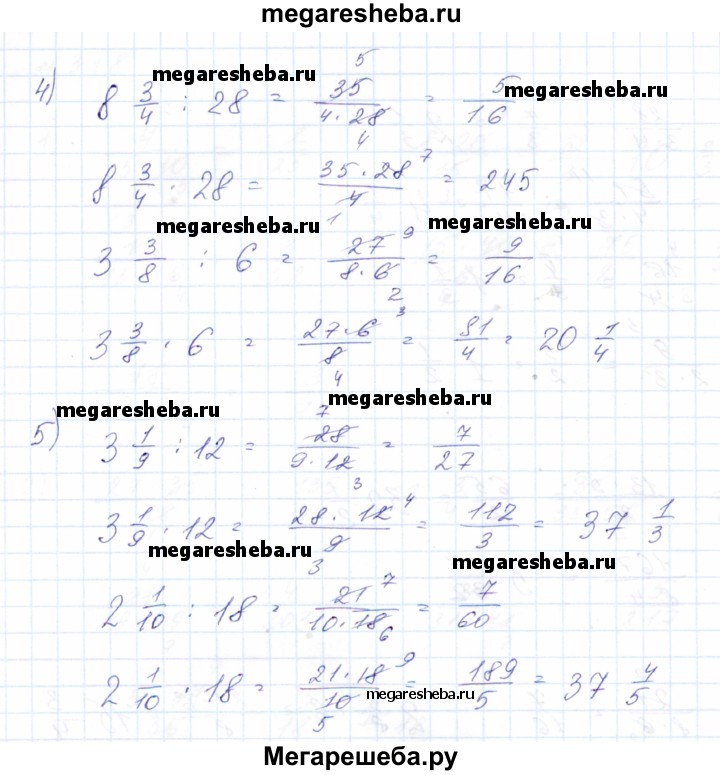 megaresheba.ru
megaresheba.ru
4) 8 3/4 : 28 = 35/(4·28) = 5/16 megaresheba.ru
5
4
8 3/4 · 28 = (35·28)/4 = 245
7
1
megaresheba.ru megaresheba.ru
3 3/8 : 6 = 27/(8·6) = 9/16
9
2
3 3/8 · 6 = (27·6)/8 = 81/4 = 20 1/4
3
4
megaresheba.ru megaresheba.ru
5) 3 1/9 : 12 = 28/(9·12) = 7/27
7
3
3 1/9 · 12 = (28·12)/9 = 112/3 = 37 1/3
4
3
megaresheba.ru megaresheba.ru
2 1/10 : 18 = 21/(10·18) = 7/60
7
6
2 1/10 · 18 = (21·18)/10 = 189/5 = 37 4/5
9
5
megaresheba.ru
Мегарешеба.ру